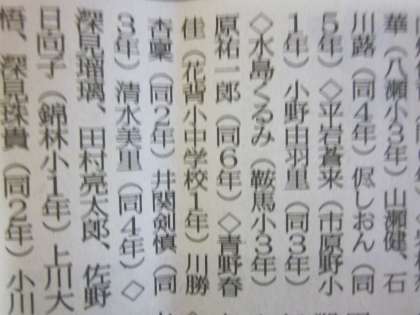 華（八瀬小3年）山瀬健、石
川蕗（同4年）倻しおん（同
5年）◇平岩蒼来（市原野小
1年）小野由羽里（同3年）
◇水島くるみ（鞍馬小3年）
原祐一郎（同6年）◇青野春
佳（花背小中学校1年）川勝
杏凜（同2年）井関剣慎（同
3年）清水美里（同4年）◇
深見瑠璃、田村亮太郎、佐野
日向子（錦林小1年）上川大
悟、深見珠貴（同2年）小川